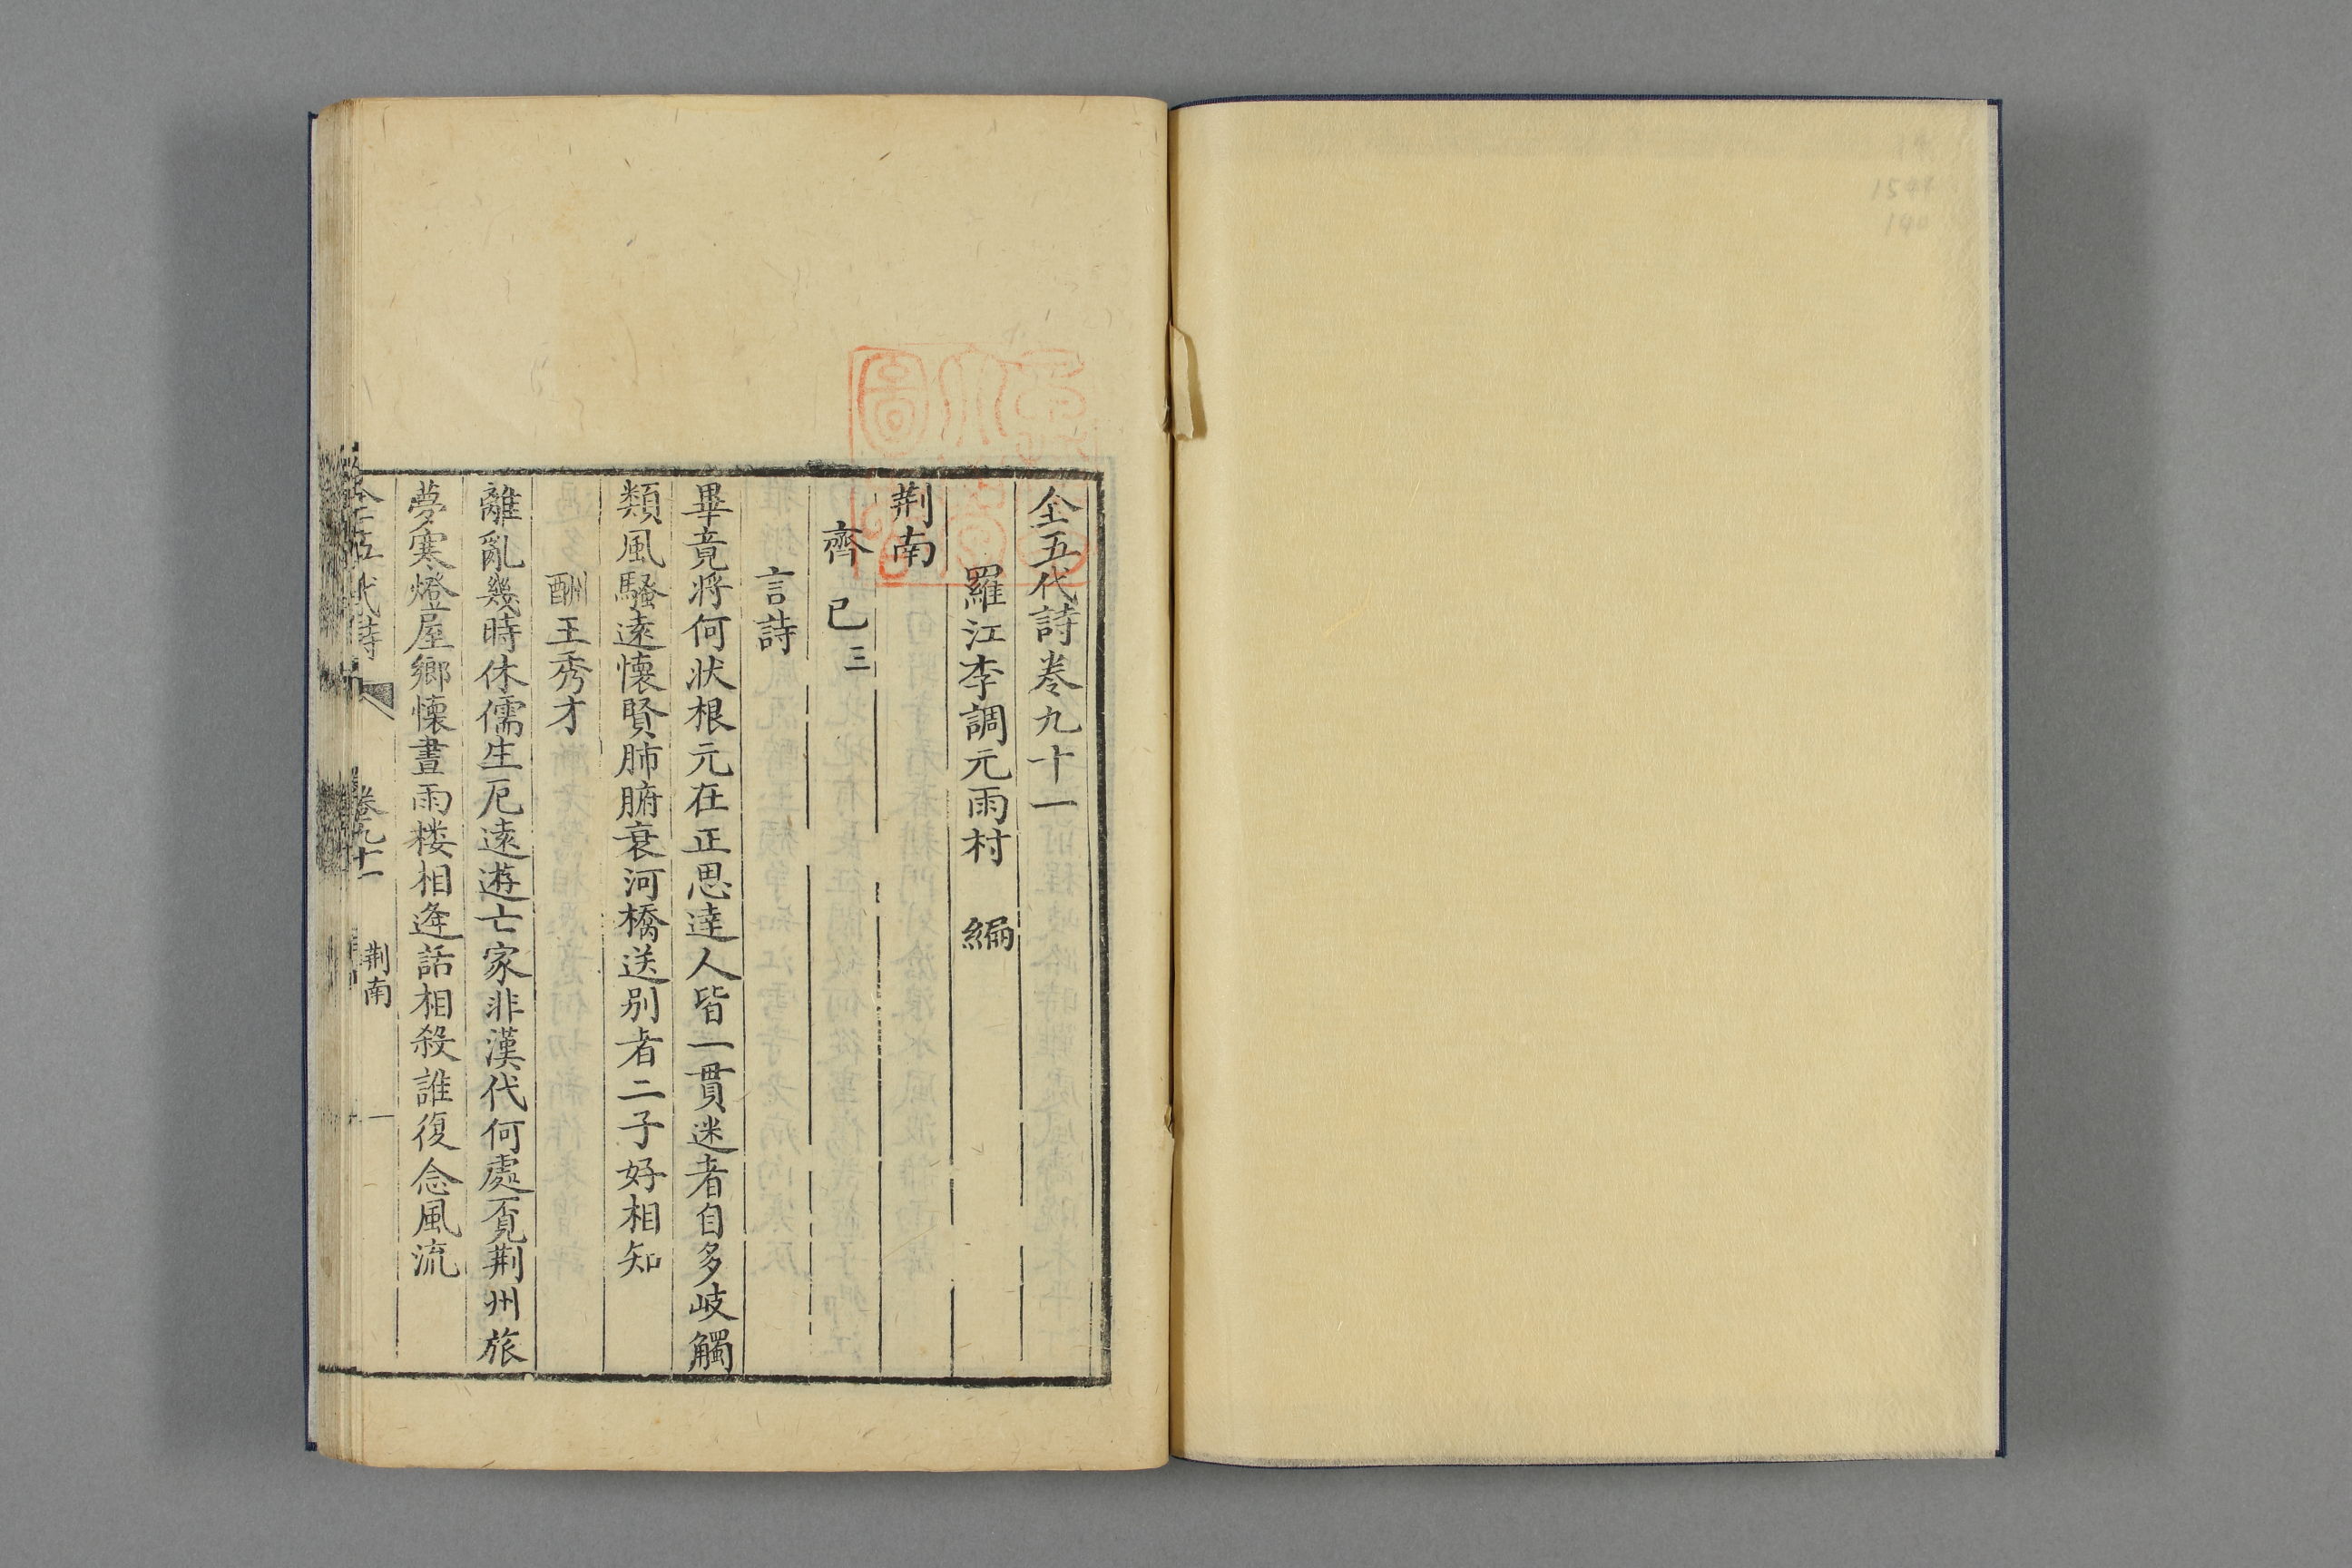 全五代詩卷九十一
羅江李調元雨村 編
荆南
齊己三
言詩
畢竟將何狀根元在正思達人皆一貫迷者自多岐觸
類風騷遠懷賢肺腑衰河橋送别者二子好相知
酬王秀才
離亂幾時休儒生厄遠遊亡家非漢代何處覔荆州旅
夢寒燈屋鄉懷晝雨楼相逢話相殺誰復念風流
全五代詩
卷九十一
荆南
一